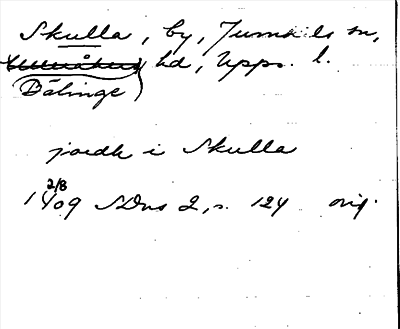 Skulla, by, Jumkils sn,
hd, Upps. l.
Bälinge
jordh i Skulla
2/8
1409 SDns 2, s. 124 orig.